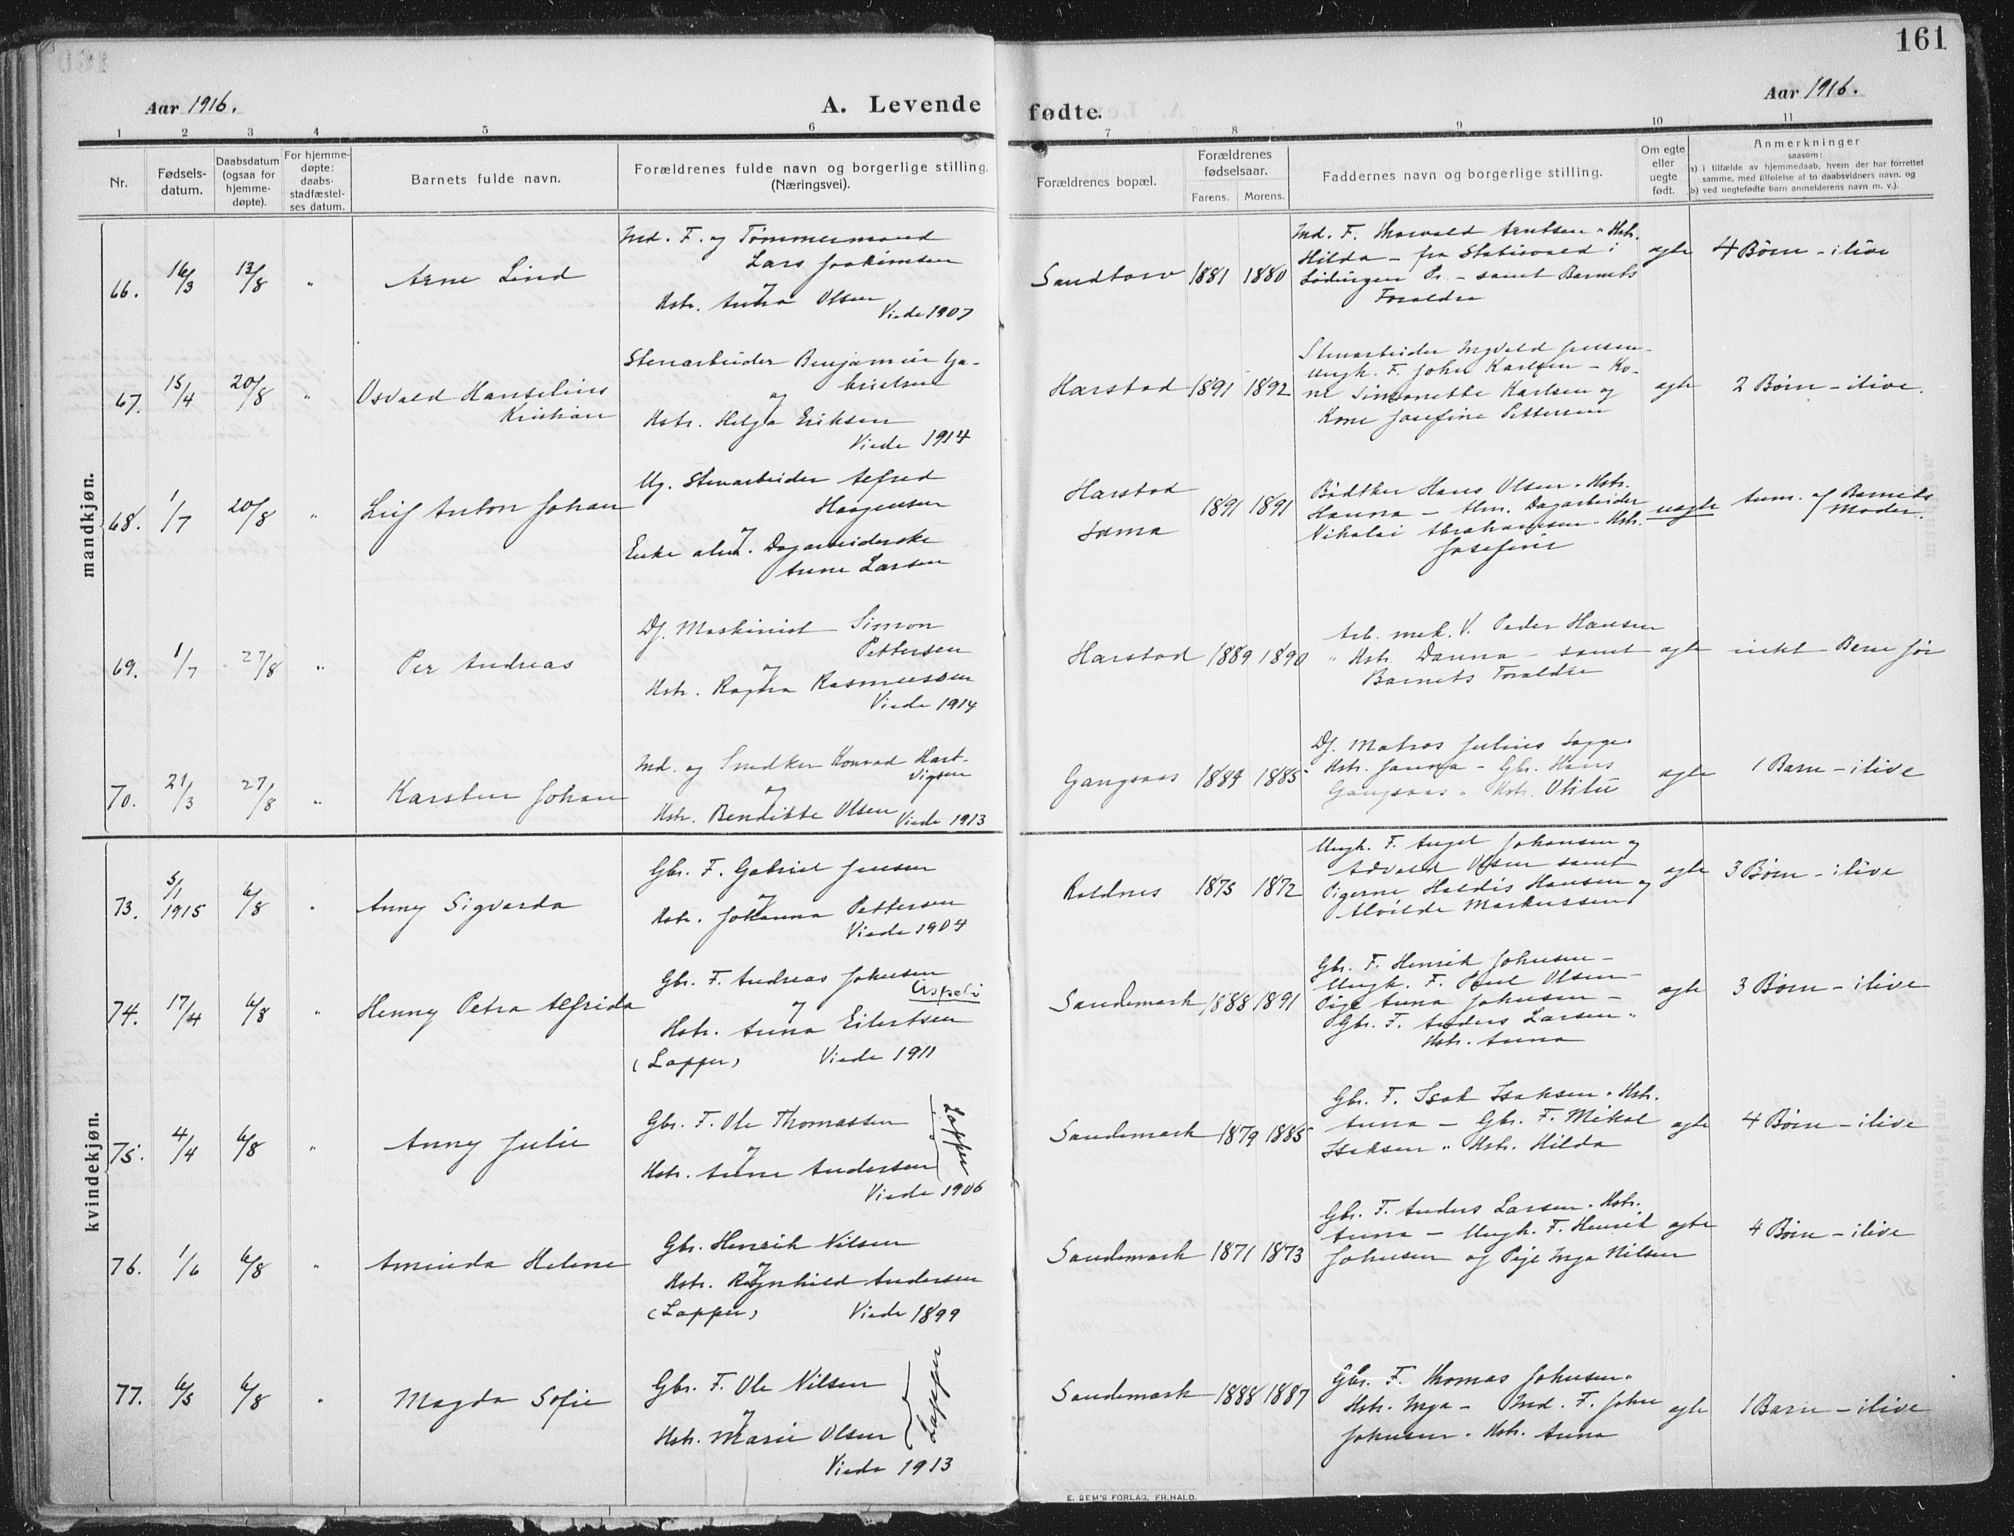 161
Aar 1916.
A. Levende fødte.
Aar 1916.
1 2 3 4 5 6 7 8 9 10 11
Nr.
Fødsels-
datum.
Daabsdatum
(ogsaa for
hjemme-
døpte).
For hjemme-
døpte:
daabs-
stadfæstel-
ses datum.
Barnets fulde navn.
Forældrenes fulde navn og borgerlige stilling.
(Næringsvei).
Forældrenes bopæl.
Forældrenes
fødselsaar.
Farens. Morens.
Faddernes navn og borgerlige stilling.
Om egte
eller
uegte
født.
Anmerkninger
saasom:
a) i tilfælde av hjemmedaab, hvem der har forrettet
samme, med tilføielse af to daabsvidners navn, og
b) ved uegtefødte barn anmelderens navn m. v.).
mandkjøn.
66. 16/3 13/8 "
Arne Lind
Md. F. og Tømmermand
Lars Joakimsen
og
Hstr. Anna Olsen
Viede 1907
Sandtorv 1881 1880
Md. F. Thorvald Arntsen " Hstr.
Hilda – fra i
Lødingen Pr. – samt Barnets
Foraldre
agte
4 Børn – ilive
67. 15/4 20/8 "
Osvald Hanselius
Kristian
Stenarbeider Benjamin Ga-
brielsen
og
Hstr. Helga Eriksen
Viede 1914
Harstad 1891 1892
Stenarbeider Ingvald Jensen –
Ungk. F. John Karlsen – Ko-
ne Simonette Karlsen og
Kone Josefine Pettersen
agte
2 Børn – ilive.
68. 1/7 20/8 "
Leif Anton Johan
Ug. Stenarbeider Alfred
Haagensen
og
Enke alm. Dagarbeiderske
Anne Larsen
Harstad
Sama
1891 1891
Bødtker Hans Olsen " Hstr.
Hanna – Alm. Dagarbeider
Nikolai Abrahamsen " Hstr.
Josefine
uagte
Anm. af Barnets
Moder.
69. 1/7 27/8 "
Per Andreas
Df. Maskinist Simon
Pettersen
og
Hstr. Ragna Rasmussen
Viede 1914
Harstad 1889 1890
Arb. mek. V. Peder Hansen
" Hstr. Danna – samt
Barnets Foraldre
agte
intet Barn før
70. 21/3 27/8 "
Karsten Johan
Md. og Snedker Konrad Hart-
vigsen
og
Hstr. Benditte Olsen Viede 1913
Gangsaas 1884 1885
Df. Matros Julius
Hstr. Janna – Gbr. Hans
Gangsaas " Hstr. Otilie
agte
1 Barn – ilive
kvindekjøn.
73. 5/1 1915 6/8 "
Anny Sigvarda
Gbr. F. Gabriel Jensen
og
Hstr. Johanna Pettersen
Viede 1904
Roldnes 1875 1872
Ungk. F. Angel Johansen og
Advald Olsen samt
Pigerne Haldis Hansen og
Alvilde Markussen
agte
3 Børn – ilive
74. 17/4 6/8 "
Henny Petra Alfrida
Gbr. F. Andreas Johnsen
Aspeli
og
Hstr. Anna Eilertsen
(Lapper) Viede 1911
Sandemark 1888 1891
Gbr. F. Henrik Johnsen –
Ungk. F. Paul Olsen –
Pige Anna Johnsen –
Gbr. F. Anders Larsen "
Hstr. Anna
agte
3 Børn – ilive
75. 4/4 6/8 "
Anny Julie
Gbr. F. Ole Thomassen
og
Hstr. Anne Andersen
Lapper
Viede 1906
Sandemark 1879 1885
Gbr. F. Isak Isaksen " Hstr.
Anna – Gbr. F. Mikal
Isaksen " Hstr. Hilda
agte
4 Børn – ilive
76. 1/6 6/8 "
Aminda Helene
Gbr. Henrik Nilsen
og
Hstr. Ragnhild Andersen
(Lapper) Viede 1899
Sandemark 1871 1873
Gbr. F. Anders Larsen " Hstr.
Anna – Ungk. F. Henrik
Johnsen og Pige Inga Nilsen
agte
4 Børn – ilive
77. 6/5 6/8 "
Magda Sofie
Gbr. F. Ole Nilsen
og
Hstr. Marie Olsen
Lapper
Viede 1913
Sandemark 1888 1887
Gbr. F. Thomas Johnsen "
Hstr. Inga – Md. F. John
Johnsen " Hstr. Anna
agte
1 Barn – ilive
E. SEM'S FORLAG, FR.HALD.